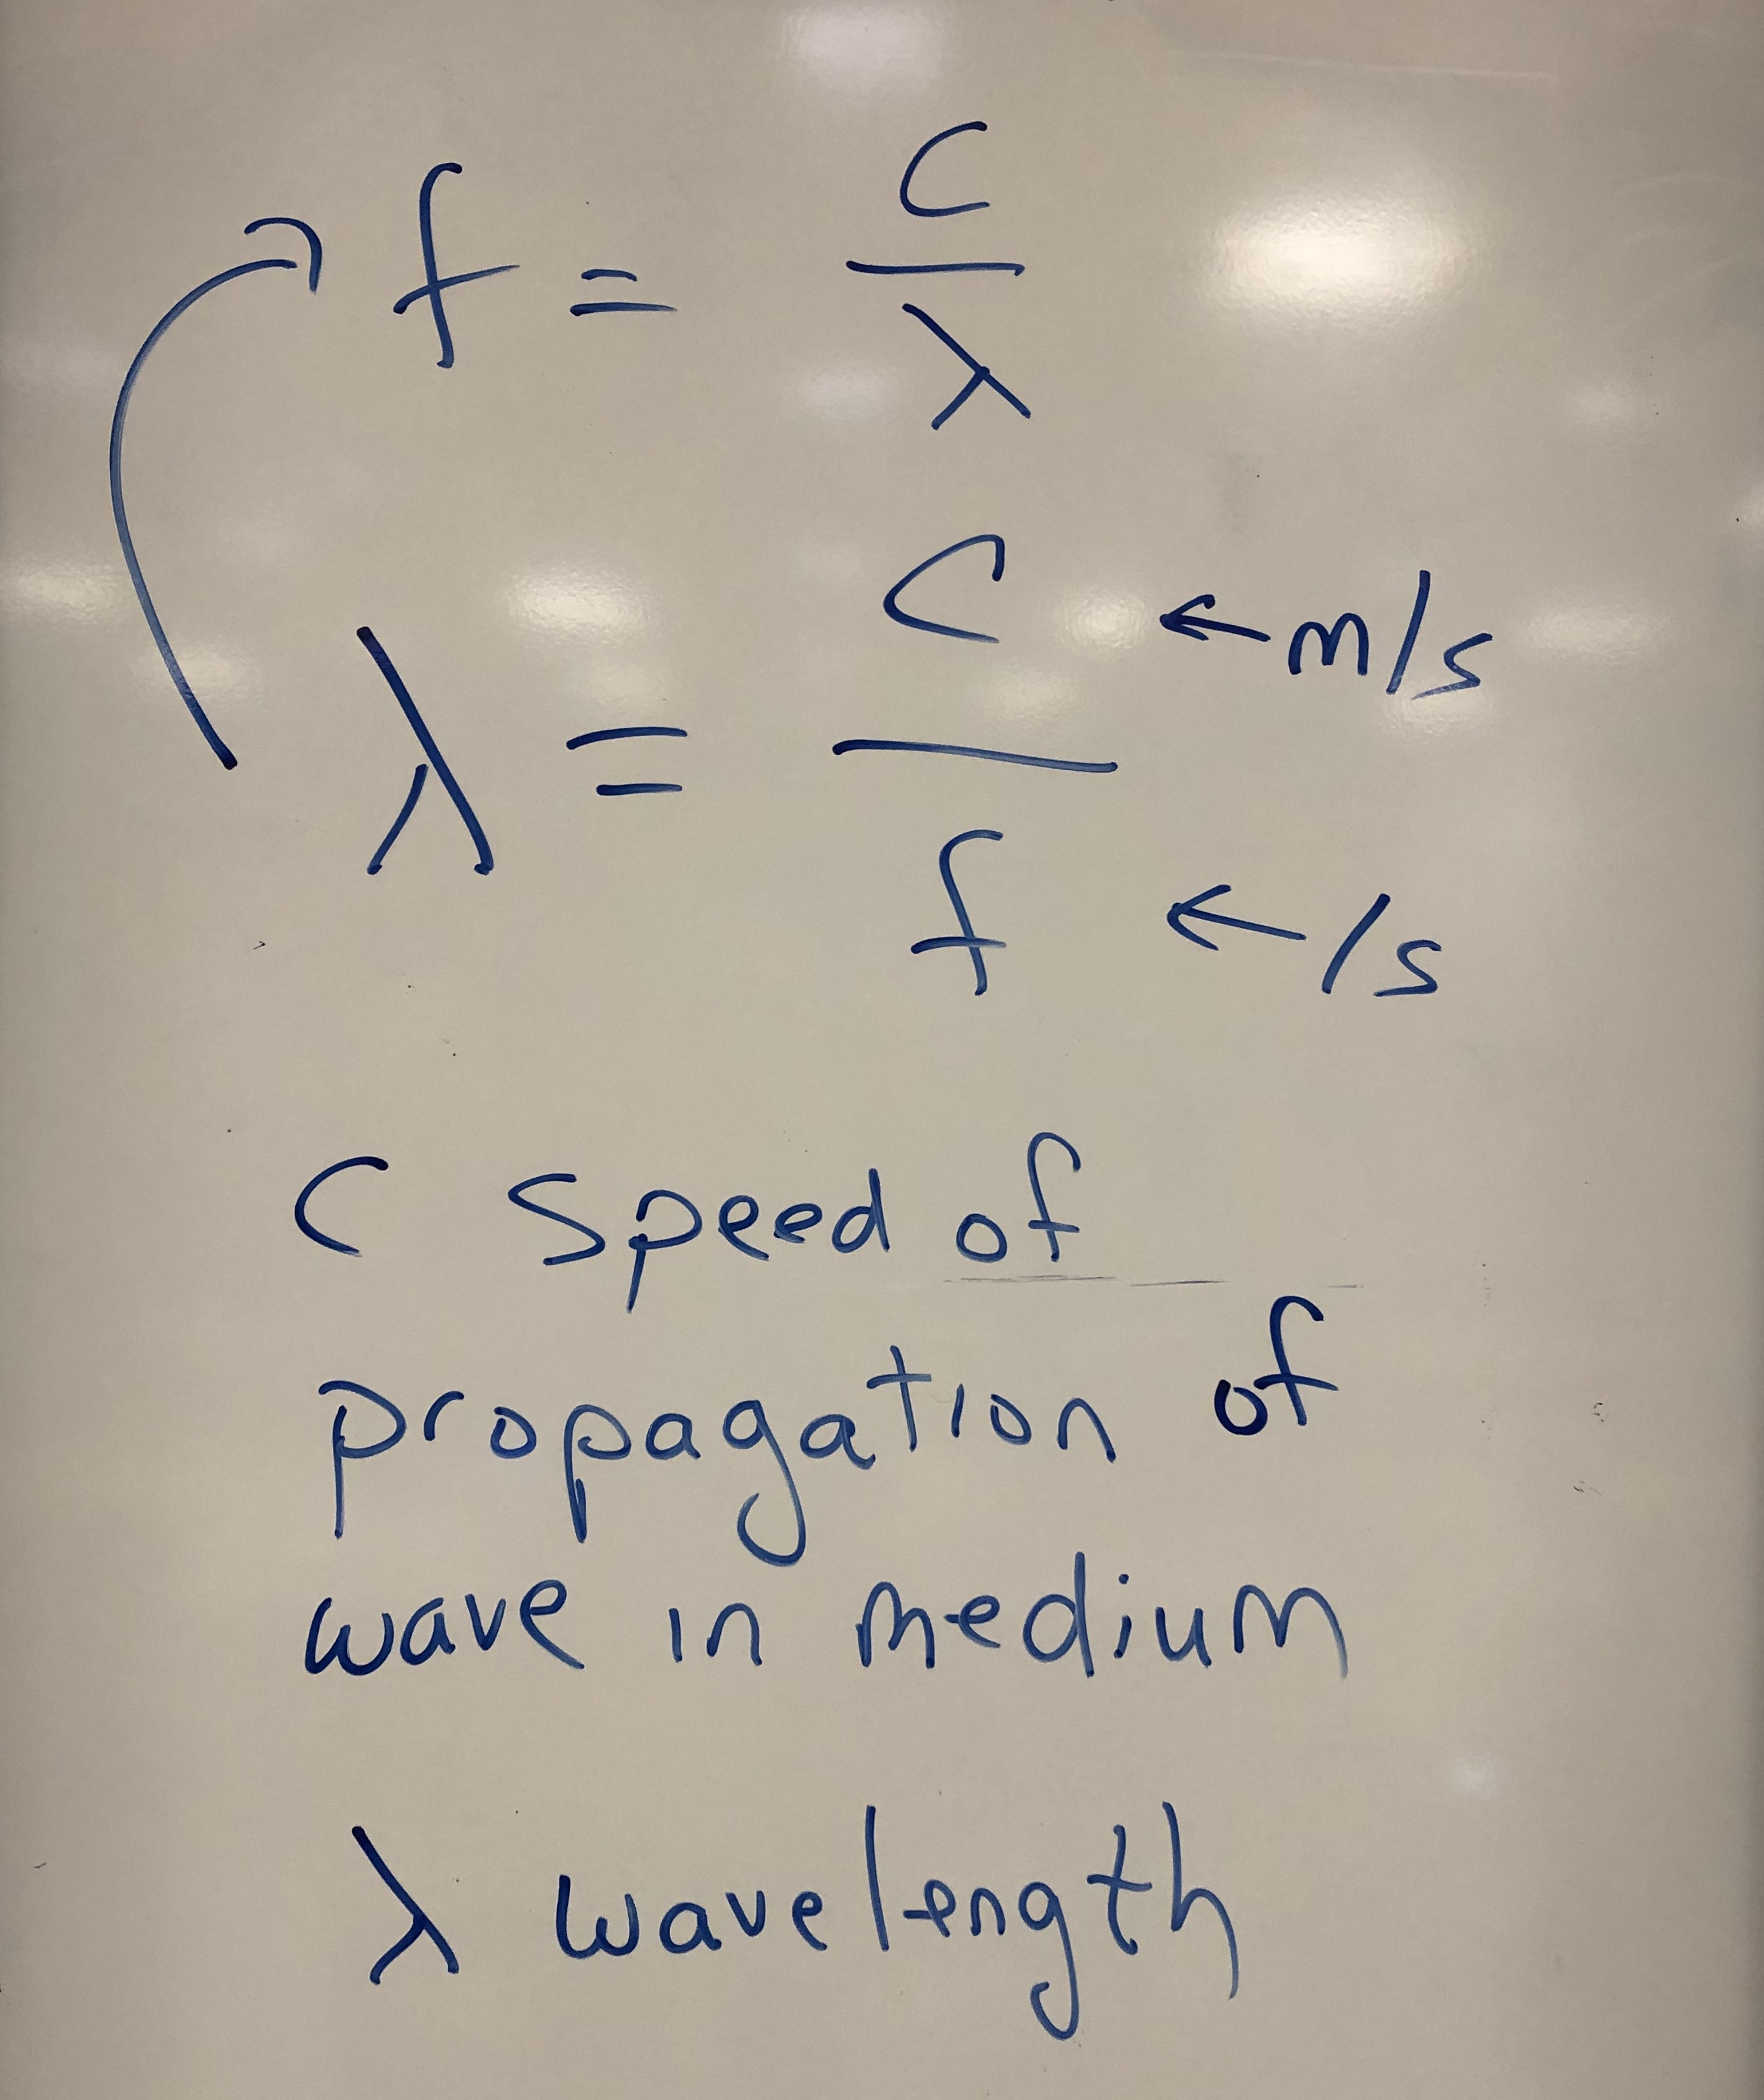 f = c/λ
λ = c/f
← m/s
← /s
C speed of
propagation of
wave in medium
λ wavelength